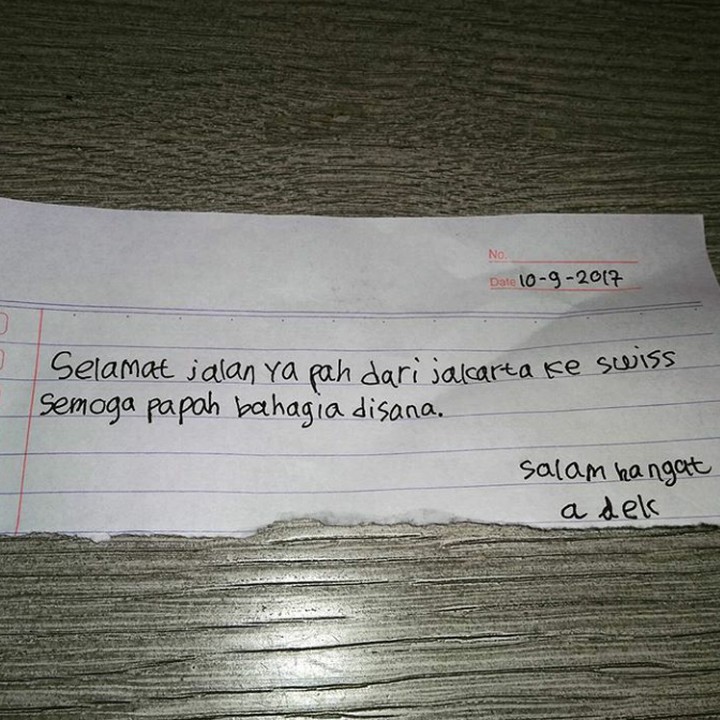 No.
Date 10-9-2017
Selamat jalan ya pah dari jakarta ke swiss
semoga papah bahagia disana.
salam hangat
adek